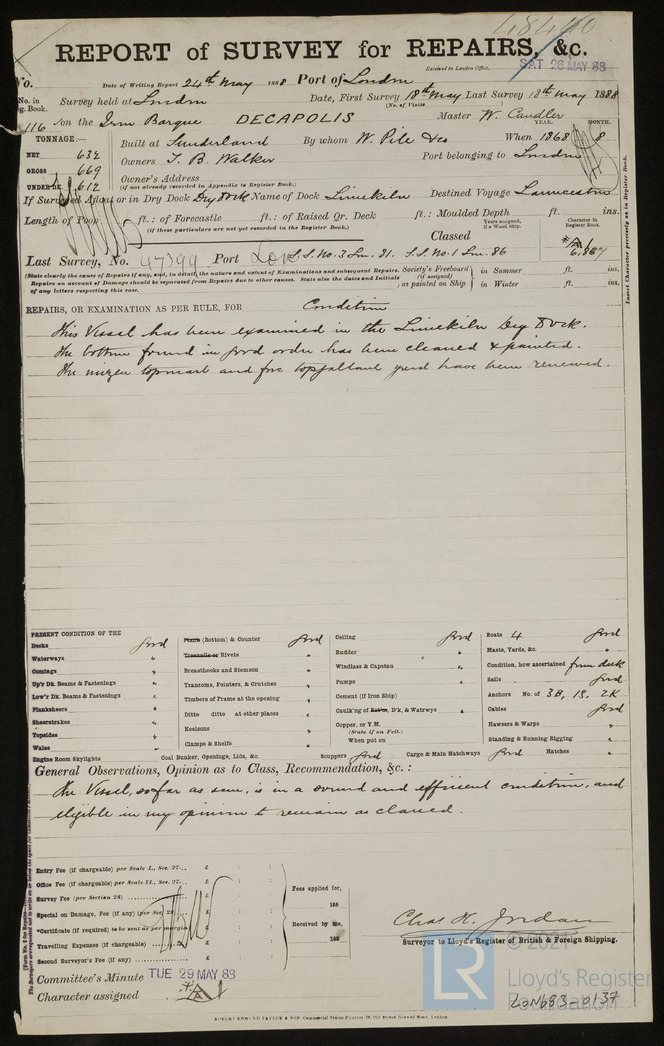 48440
REPORT of SURVEY for REPAIRS, &c.
Received in London Office, SAT 26 MAY 88
No. Date of Writing Report 24th May 1888 Port of London
No. in Survey held at London Date, First Survey 18th May Last Survey 18th May 1888
Reg. Book. (No. of Visits
116 on the Iron Barque DECAPOLIS Master W. Caudler
TONNAGE:— YEAR. MONTH.
Built at Sunderland By whom W. Pile & Co When 1868 8
NET 632
GROSS 669 Owners T. B. Walker Port belonging to London
UNDER DK 612 Owner's Address
(if not already recorded in Appendix to Register Book.)
If Surveyed Afloat or in Dry Dock Dry Dock Name of Dock Limekiln Destined Voyage Launceston
Length of Poop ft.: of Forecastle ft.: of Raised Qr. Deck ft.: Moulded Depth ft. ins.
(if these particulars are not yet recorded in the Register Book.)
Years assigned, if a Wood Ship.
Character in Register Book.
Classed
Last Survey, No. 47399 Port Lon S.S. No. 3 Lon. 81. S.S. No. 1 Lon. 86 A1 6,867
(State clearly the cause of Repairs if any, and, in detail, the nature and extent of Examinations and subsequent Repairs. Society's Freeboard in Summer ft. ins.
Repairs on account of Damage should be separated from Repairs due to other causes. State also the dates and Initials (if assigned)
of any letters respecting this case. as painted on Ship in Winter ft. ins.
Insert Character precisely as in Register Book.
REPAIRS, OR EXAMINATION AS PER RULE, FOR Condition
This Vessel has been examined in the Limekiln Dry Dock.
The bottom found in good order has been cleaned & painted.
The mizen topmast and fore topgallant yard have been renewed.
PRESENT CONDITION OF THE
Decks good
Waterways "
Comings "
Up'r Dk. Beams & Fastenings "
Low'r Dk. Beams & Fastenings "
Planksheers "
Sheerstrakes "
Topsides "
Wales "
Engine Room Skylights
Plank (Bottom) & Counter good
Treenails or Rivets "
Breasthooks and Stemson "
Transoms, Pointers, & Crutches "
Timbers of Frame at the opening "
Ditto ditto at other places "
Keelsons "
Clamps & Shelfs "
Coal Bunker, Openings, Lids, &c.
Ceiling good
Rudder "
Windlass & Capstan "
Pumps "
Cement (if Iron Ship) "
Caulk'ng of Bot'm, D'k, & Watrwys "
Copper, or Y.M.
(State if on Felt.)
When put on
Scuppers good Cargo & Main Hatchways good Hatches "
Boats 4 good
Masts, Yards, &c. "
Condition, how ascertained from deck
Sails good
Anchors No. of 3B, 1S, 2K
Cables good
Hawsers & Warps "
Standing & Running Rigging "
General Observations, Opinion as to Class, Recommendation, &c.:
The Vessel, so far as seen, is in a sound and efficient condition, and
eligible in my opinion to remain as classed.
Entry Fee (if chargeable) per Scale I., Sec. 27... £ : :
Office Fee (if chargeable) per Scale II., Sec. 27... £ : :
Survey Fee (per Section 28) £ : :
Special on Damage, Fee (if any) (per Sec. 28) £ : :
Certificate (if required) to be sent as per margin £ : :
Travelling Expenses (if chargeable) £ : :
Second Surveyor's Fee (if any) £ : :
Fees applied for,
188
Received by me,
188
Chas. H. Jordan
Surveyor to Lloyd's Register of British & Foreign Shipping.
Committee's Minute TUE 29 MAY 88
Character assigned A1
ROBERT EDMUND TAYLOR & SON, Commercial Steam Printers, 19, Old Street, Goswell Road, London.
© 2021
LR
Lloyd's Register
Foundation
LON683-0137